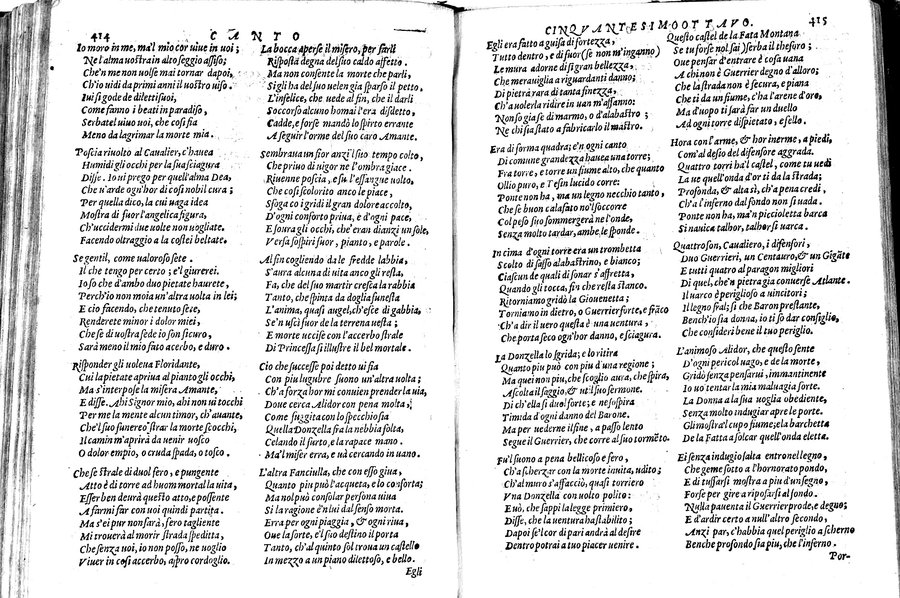 414 CANTO
Io moro in me, ma'l mio cor uiue in uoi;
Ne l'alma uostra in alto seggio assiso;
Che'n me non uolse mai tornar dapoi,
Ch'io uidi da primi anni il uostro uiso.
Iui si gode de diletti suoi,
Come fanno i beati in paradiso,
Serbatel uiuo uoi, che così fia
Meno da lagrimar la morte mia.
Poscia riuolto al Caualier, c'hauea
Humidi gli occhi per la sua sciagura
Disse. Io ui prego per quell'alma Dea,
Che u'arde ogn'hor di così nobil cura;
Per quella dico, la cui uaga idea
Mostra di fuor l'angelica figura,
Ch'uccidermi due uolte non uogliate.
Facendo oltraggio a la costei beltate.
Se gentil, come ualoroso sete.
Il che tengo per certo; e'l giurerei.
Io so che d'ambo duo pietate haurete,
Perch'io non moia un'altra uolta in lei;
E cio facendo, che tenuto sete,
Renderete minor i dolor miei,
Che se di uostra fede io son sicuro,
Sarà meno il mio fato acerbo, e duro.
Risponder gli uoleua Floridante,
Cui la pietate apriua al pianto gli occhi,
Ma s'interpose la misera Amante,
E disse. Ahi Signor mio, ahi non ui tocchi
Per me la mente alcun timor, ch'auante,
Che'l suo funereo stral la morte scocchi,
Il camin m'aprirà da uenir uosco
O dolor empio, o cruda spada, o tosco.
Che se strale di duol fero, e pungente
Atto è di torre ad huom mortal la uita,
Esser ben deurà questo atto, e possente
A farmi far con uoi quindi partita.
Ma s'ei pur non sarà, fero tagliente
Mi trouerà al morir strada spedita,
Che senza uoi, io non posso, ne uoglio
Viuer in così acerbo, aspro cordoglio.
La bocca aperse il misero, per farli
Risposta degna del suo caldo affetto.
Ma non consente la morte che parli,
Sì gli ha del suo uelen già sparso il petto.
L'infelice, che uede al fin, che il darli
Soccorso alcuno homai l'era disdetto,
Cadde, e forse mandò lo spirto errante
A seguir l'orme del suo caro Amante.
Sembraua un fior anzi'l suo tempo colto,
Che priuo di uigor ne l'ombra giace.
Riuenne poscia, e su l'essangue uolto,
Che così scolorito anco le piace,
Sfoga co i gridi il gran dolore accolto,
D'ogni conforto priua, e d'ogni pace,
E soura gli occhi, che'eran dianzi un sole,
Versa sospiri fuor, pianto, e parole.
Al fin cogliendo da le fredde labbia,
S'aura alcuna di uita anco gli resta,
Fa, che del suo martir cresca la rabbia
Tanto, che spinta da doglia funesta
L'anima, quasi augel, ch'esce di gabbia,
Se'n uscì fuor de la terrena uesta;
E morte uccise con l'acerbo strale
Di Principessa sì illustre il bel mortale.
Cio che successe poi detto ui fia
Con piu lugubre suono un'altra uolta;
Ch'a forza hor mi conuien prender la uia,
Doue cerca Alidor con pena molta;
Come fuggita con lo specchio sia
Quella Donzella sia la nebbia folta,
Celando il furto, e la rapace mano.
Ma'l miser erra, e uà cercando in uano.
L'altra Fanciulla, che con esso giua,
Quanto piu può l'acqueta, e lo conforta;
Ma nol può consolar persona uiua
Sì la ragione è'n lui dal senso morta.
Erra per ogni piaggia, & ogni riua,
Oue la sorte, e'l suo destino il porta
Tanto, ch'al quinto sol troua un castello
In mezzo a un piano dilettoso, e bello.
Egli
CINQVANTESIMOOTTAVO. 415
Egli era fatto a guisa di fortezza,
Tutto dentro, e di fuor (se non m'inganno)
Le mura adorne di sì gran bellezza,
Che merauiglia a riguardanti danno;
Di pietra rara di tanta finezza,
Ch'a uolerla ridire in uan m'affanno:
Non so già se di marmo, o d'alabastro;
Ne chi sia stato a fabricarlo il mastro.
Era di forma quadra; e'n ogni canto
Di comune grandezza hauea una torre;
Fra torre, e torre un fiume alto, che quanto
Ollio puro, e Tesin lucido corre:
Ponte non ha, ma un legno necchio tanto,
Che se buon calafato no'l soccorre
Col peso suo sommergerà ne l'onde,
Senza molto tardar, ambe le sponde.
In cima d'ogni torre era un trombetta
Scolto di sasso alabastrino, e bianco;
Ciascun de quali di sonar s'affretta,
Quando gli tocca, fin che resta stanco.
Ritorniamo gridò la Giouenetta;
Torniamo in dietro, o Guerrier forte, e frāco
Ch'a dir il uero questa è una uentura,
Che porta seco ogn'hor danno, e sciagura.
La Donzella lo sgrida; e lo ritira
Quanto piu può con piu d'una ragione;
Ma quei non piu, che scoglio aura, che spira,
Ascolta il saggio, & util suo sermone.
Di ch'ella si duol forte; e ne sospira
Timida d'ogni danno del Barone.
Ma per uederne il fine, a passo lento
Segue il Guerrier, che corre al suo tormēto.
Fu'l suono a pena bellicoso e fero,
Ch'a scherzar con la morte inuita, udito;
Ch'al muro s'affacciò, quasi torriero
Vna Donzella con uolto polito:
E uò, che sappi la legge primiero,
Disse, che la uentura ha stabilito;
Dapoi se'l cor di pari andrà al desire
Dentro potrai a tuo piacer uenire.
Questo castel de la Fata Montana
Se tu forse nol sai) serba il thesoro;
Oue pensar d'entrare è cosa uana
A chi non è Guerrier degno d'alloro;
Che la strada non è secura, e piana
Che ti da un fiume, c'ha l'arene d'oro,
Ma d'uopo ti sarà far un duello
Ad ogni torre dispietato, e fello.
Hora con l'arme, & hor inerme, a piedi,
Com'al desio del difensore aggrada.
Quattro torri ha'l castel, come tu uedi
La ue quell'onda d'or ti da la strada;
Profonda, & alta sì, ch'a pena credi,
Ch'a l'inferno dal fondo non si uada.
Ponte non ha, m'a n piccioletta barca
Si nauica talhor, talhor si uarca.
Quattro son, Caualiero, i difensori,
Duo Guerrieri, un Centauro, & un Gigāte
E tutti quatro al paragon migliori
Di quel, che'n pietra già conuerse Atlante.
Il uarco è periglioso a uincitori;
Il legno fral; sì che Baron prestante,
Bench'io sia donna, io ti so dar consiglio,
Che consideri bene il tuo periglio.
L'animoso Alidor, che questo sente
D'ogni pericol uago, e de la morte.
Gridò senza pensarui, immantinente
Io uo tentar la mia maluagia sorte.
La Donna a la sua uoglia obediente,
Senza molto indugiar apre le porte.
Gli mostra'l cupo fiume; e la barchetta
De la Fatta a solcar quell'onda eletta.
Ei senza indugio salta entro nel legno,
Che geme sotto a l'honorato pondo,
E di tuffarsi mostra a piu d'un segno,
Forse per gire a riposarsi al fondo.
Nulla pauenta il Guerrier prode, e degno;
E d'ardir certo a null'altro secondo,
Anzi par, c'habbia quel periglio a scherno
Benche profondo sia piu, che l'inferno.
Por-